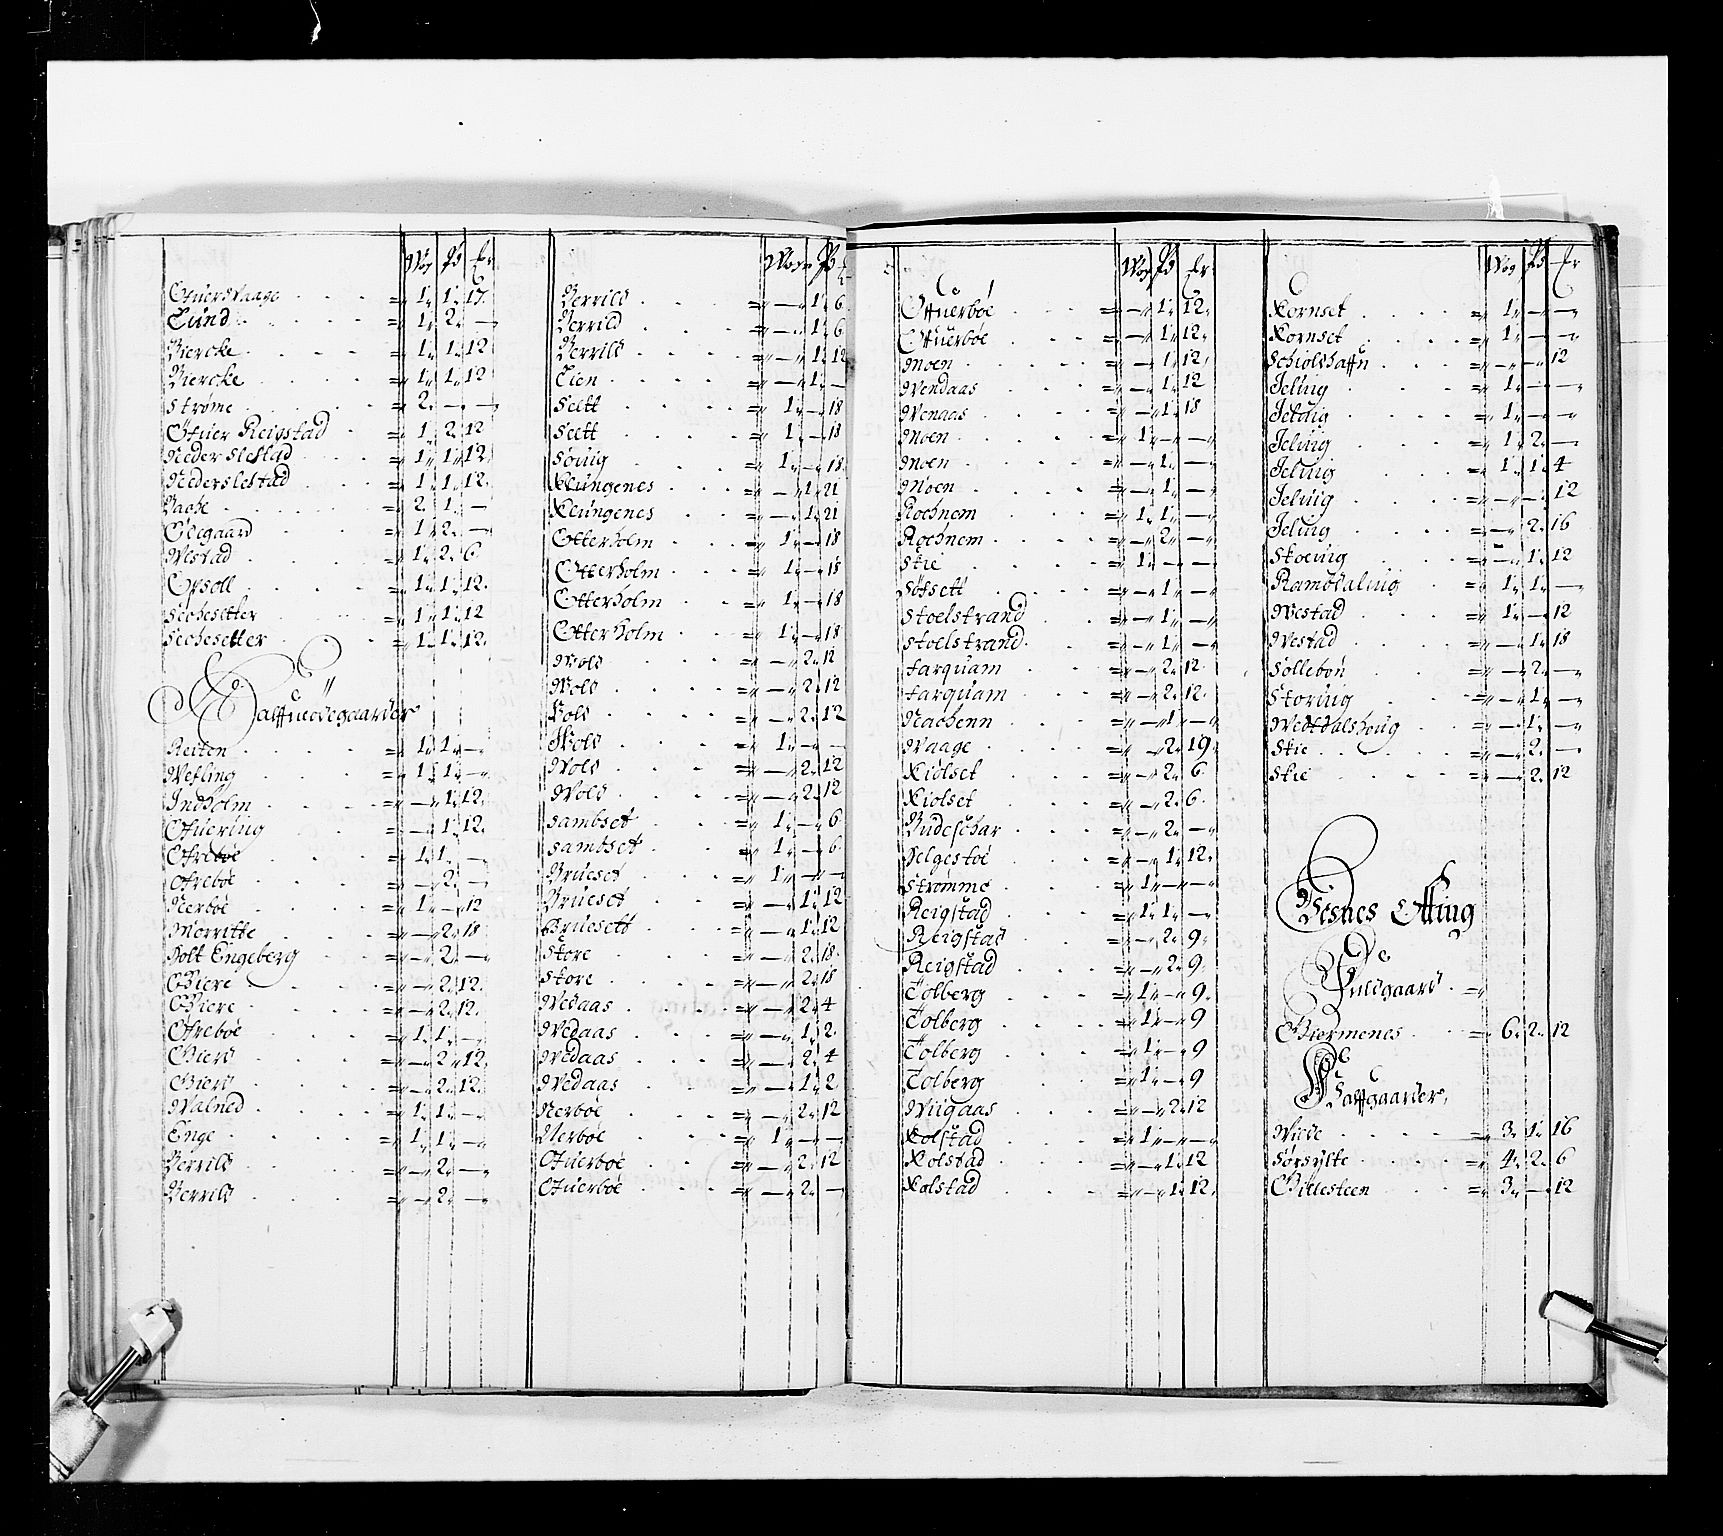 Wog Pd Er
Ofuersvaage = 1. 1. 17.
Lund = 1. 2. —
Biercke = 1. 1. 12
Biercke = 1. 1. 12
Strøme = 2. — —
Øfuer Reigstad = 1. 2. 12
Nederslestad = 1. 1. 12.
Nederslestad = 1. 1. 12.
= 2. 1. —
Oegaard = 1. 2. —
Westad = 1. 2. 6
Opsoll = 1. 1. 12.
Sechesetter = 1. 1. 12
Sechesetter = 1. 1. 12.
Halffueødegaarder
Reiten = 1. 1. —
Wefling = 1. 1. —
Indholm = — 1. 12.
Ofuering = — 1. 12.
Ofrebøe = 1. 1. —
Ofrebøe = — 2. —
Nerbøe = 1. — 12
Morritte = — 2. 18
Holt Engeberg = — 2. —
Giere = — 2. 12.
Giere = — 2. 12.
Ofrebøe = 1. 1. —
Gierd = — 2. 12.
Gierd = — 2. 12.
Walned = 1. 1. —
Enge = 1. 1. —
Berrild = — 2. —
Berrild = — 2. —
Wog Pd
Berrild = — 1. 6
Berrild = — 1. 6
Berrild = — 1. 12
Lien = — 1. —
Sett = 1. — 18
Sett = 1. — 18
Sønig = 1. — 18
Klungenes = — 1. 21
Klungenes = — 1. 21
Otterholm = 1. — 18
Otterholm = 1. — 18
Otterholm = 1. — 18
Otterholm = 1. — 18
Wold = — 2. 12
Wold = — 2. 12
Wold = — 2. 12
Wold = 1. — —
Wold = — 2. 12
Wold = — 2. 12
Sambset = 1. — 6
Sambset = 1. — 6
Brueset = 1. — —
Brueset = — 1. 12
Bruesett = — 1. 12
Store = — 2. 18.
Store = — 2. 18
Wedaas = — 2. 4
Wedaas = — 1. 2.
Wedaas = — 2. 4
Wedaas = — 1. 2
Nerbøe = — 2. 12
Nerbøe = 1. — —
Ofuerbøe = — 2. 12
Ofuerbøe = — 2. —
Wog Pd Er
Offuerbøe = — 1. 12.
Offuerbøe = — 1. 12.
Moen = — 1. 12.
Wendaas = — 1. 12
Wenaas = — 1. 18
Moen = 1. — —
Moen = — 1. —
Moen = — 1. —
Rochnem = 1. 1. —
Rochnem = — 2. —
Skie = 1. — —
Søfsett = — 1. —
Stoelstrand = — 1. —
Stoelstrand = — 1. —
Farquam = — 2. 12.
Farquam = — 2. 12.
Nachenn = — 1. —
Waage = — 2. 19.
Kiølset = — 2. 6.
Kiølset = — 2. 6.
Budeschar = — 2. —
Helgestøe = — 1. 12.
Strømme = 1. — —
Reigstad = 1. 1. —
Reigstad = — 2. 9.
Reigstad = — 2. 9.
Tolberg = 1. — 9.
Tolberg = 1. — 9
Tolberg = 1. — 9
Tolberg = 1. — 9
Wiigaas = — 2. 12
Kolstad = 1. — —
Kolstad = — 1. 12
Kolstad = — 1. 12.
Wog Pd Er
Kornset = 1. — —
Kornset = 1. — —
Schiolshaffn = — — 12
Jelnig = 1. — —
Jelnig = 1. — —
Jelnig = 1. 2. —
Jelnig = 1. 1. 4
Jelnig = — — 12
Jelnig = — 2. 16
Skoeing = — 1. 12
Ramsdalnig = 1. 1. —
Westad = 1. — 12
Westad = — 1. 18
Søllebøn = — 2. —
Storing = — 1. —
Weddalshoug = — 1. —
Skie = — 2. —
Skie = — 2. 12
Wesnes Otting
De
Fuldgaard. =
Giermenes = 6. 2. 12
De
Halffgaarder.
Wiide = 3. 1. 16
Sørsylte = 4. 2. 6
Billesteen = 3. — 12